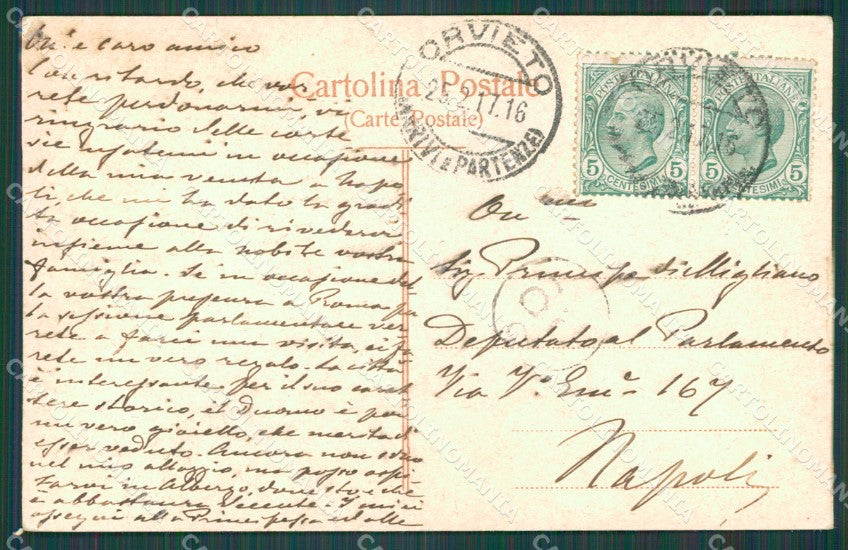 On. e caro amico
Con ritardo, che vor
rete perdonarmi, vi
ringrazio delle corte
sie usatemi in occasione
della mia venuta a Napo
li, che mi ha dato la gradi
ta occasione di rivedervi
insieme alla nobile vostra
famiglia. Se in occasione del
la vostra presenza a Roma pr
la sessione parlamentare ver
rete a farmi una visita, mi fa
rete un vero regalo. La città
è interessante per il suo carat
tere storico, il Duomo è poi
un vero gioiello, che merita di
esser veduto. Ancora non sono
nel mio alloggio, ma posso ospi
tarvi in Albergo, dove sto e che
è abbastanza decente. I miei
ossequi alla Principessa ed alle
Cartolina Postale
(Carte Postale)
ORVIETO
25.2.17.16
(ARRIVI E PARTENZE)
POSTE ITALIANE
5 CENTESIMI 5
POSTE ITALIANE
5 CENTESIMI 5
On
Sig. Principe di Migliano
Deputato al Parlamento
Via V. Emle 167
Napoli
CARTOLINOMANIA